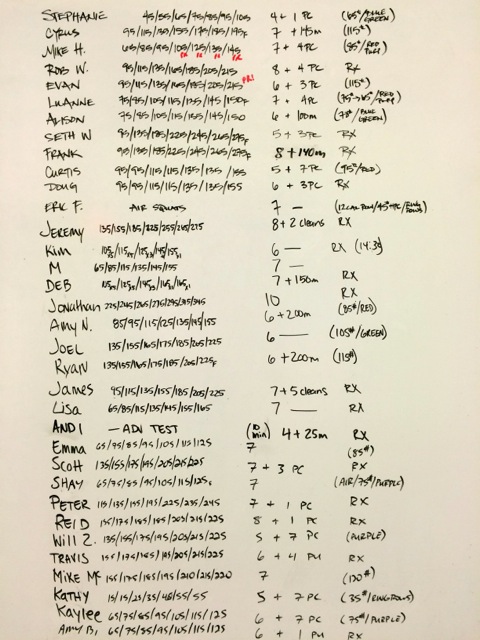 STEPHANIE 45/55/65/75/85/95/105 4 + 1 PC (65#/ GREEN)
CYRUS 95/115/135/155/175/185/195F 7 + 145m (115#)
MIKE H. 65/75/95/105/125/135/145 7 + 4PC (85#/RED
PR PR PR PR
ROB W. 95/115/135/165/185/205/215 8 + 4 PC RX
EVAN 95/115/135/165/185/205/215 PR! 6 + 3PC (115#)
LUANNE 75/85/105/115/135/145/150F 7 + 4PC
ALISON 75/85/105/115/135/145/150 6 + 100m (75#/ GREEN)
SETH W 95/135/185/225/245/265/275F 5 + 3PC RX
FRANK 95/135/185/225/245/265/275F 8 + 140m RX
CURTIS 95/95/115/115/135/135/155 5 + 7PC (95#/RED)
DOUG 95/95/115/115/135/135/155 6 + 3PC RX
ERIC F. AIR SQUATS 7 —
JEREMY 135/155/185/225/255/265/275 8 + 2 cleans RX
Kim 6 — RX (14:35)
M 65/85/115/135/145/155 7 —
DEB 7 + 150m RX
Jonathan 225/245/265/275/295/315/345 10 RX
Amy N. 85/95/115/125/135/145/155 6 + 200m (85#/RED)
JOEL 135/155/165/175/185/205/225 6 — (105#/GREEN)
Ryan 135/155/165/175/185/205/225F 6 + 200m (115#)
James 95/115/135/155/185/205/225 7 + 5 cleans RX
Lisa 65/85/115/135/145/155/165 7 — RX
ANDI — ADI TEST (10 min) 4 + 25m RX
Emma 65/75/85/95/105/115/125 7 (85#)
Scott 135/155/175/195/205/215/225 7 + 3 PC RX
SHAY 65/75/85/95/105/115/125F 7 (AIR/75#/PURPLE)
PETER 115/135/145/195/225/235/245 7 + 1 PC RX
REID 155/175/185/195/205/215/225 8 + 1 PC RX
Will Z. 135/155/175/195/205/215/225 5 + 7 PC (PURPLE)
TRAVIS 155/175/185/195/205/215/225 6 + 4 PU RX
MIKE Mc 155/175/185/195/210/215/220 7 (120#)
KATHY 15/15/25/35/45/55/55 5 + 7 PC (35#/RINGROWS)
Kaylee 65/75/85/95/105/115/125 6 + 7 PC (75#/PURPLE)
Amy B, 65/75/85/95/105/115/125 6 + 1 PU RX